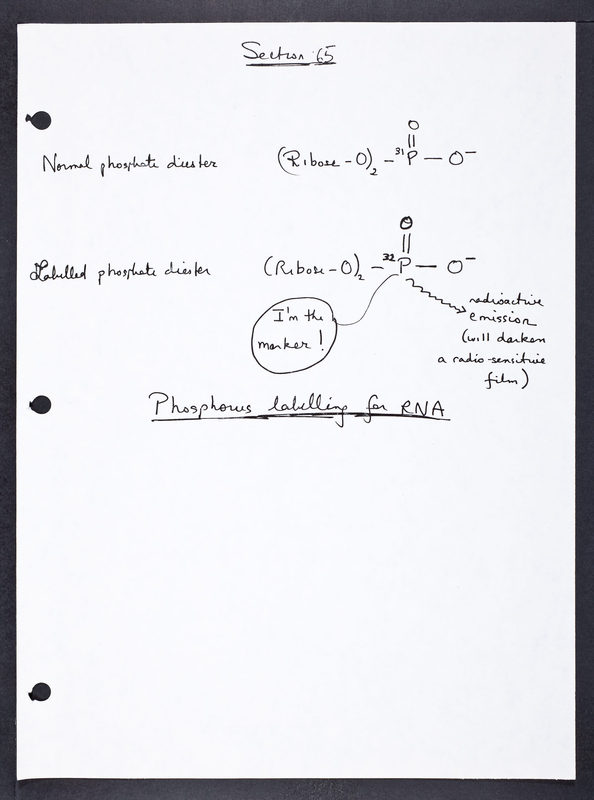 Section 65
O
||
Normal phosphate diester (Ribose – O)₂ – ³¹P – O⁻
O
||
Labelled phosphate diester (Ribose – O)₂ – ³²P – O⁻
I'm the
marker!
radioactive
emission
(will darken
a radio-sensitive
film)
Phosphorus labelling for RNA